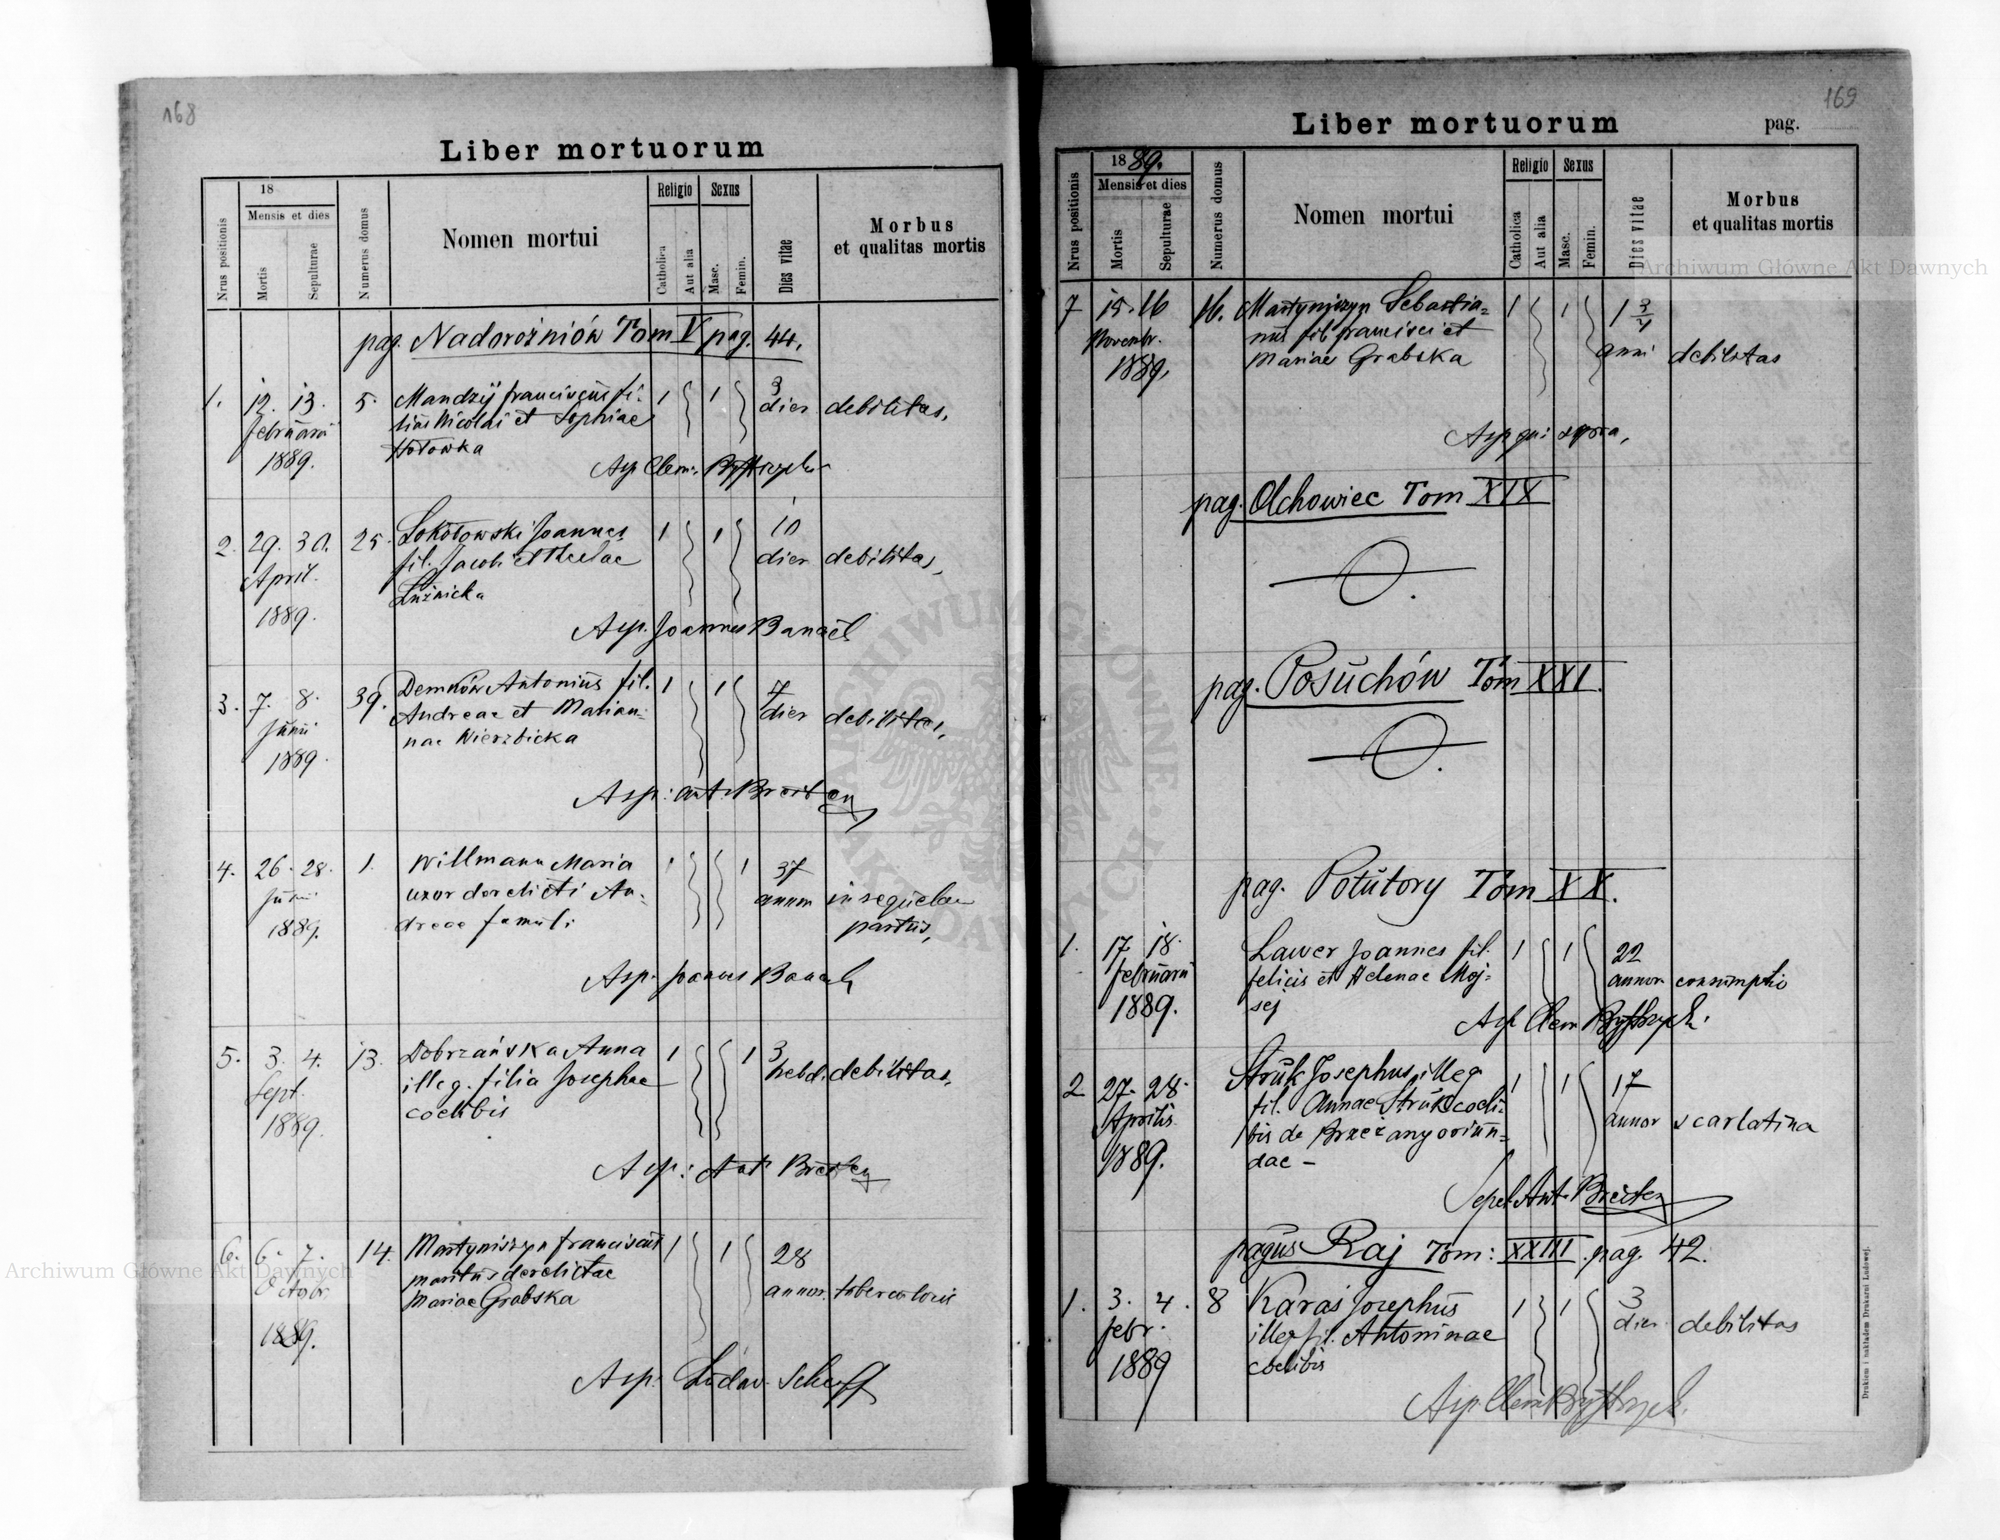 168
Liber mortuorum
Nrus positionis
18
Mensis et dies
Mortis
Sepulturae
Numerus domus
Nomen mortui
Religio
Catholica
Aut alia
Sexus
Masc.
Femin.
Dies vitae
Morbus
et qualitas mortis
pag. Nadorożniów Tom V pag. 44.
1. 12. 13. 5. Mandzij Franciscus fi- 1 1 3
Februarii lius Nicolai et Sophiae dier debilitas,
1889. Hołowka
Asp Clem:
2. 29. 30. 25. Sokołowski Joannes 1 1 10
April. fil. Jacobi et Theclae dier debilitas,
1889. Luźnicka
Asp. Joannes Banach
3. 7. 8. 39. Demków Antonius fil. 1 1 7
Junii Andreae et Marian- dier debilitas,
1889. nae Wierzbicka
Asp: Ant.
4. 26. 28. 1. Willmann Maria 1 1 37
Junii uxor derelicti An- annor in sequelam
1889. dreae famuli partus,
Asp. Joannes Banach
5. 3. 4. 13. Dobrzańska Anna 1 1 3
Sept. illeg. filia Josephae hebd. debilitas,
1889. coelibis
Asp: Ant.
6. 6. 7. 14. Martyniszyn Franciscus 1 1 28
Octobr. maritus derelictae annor. tuberculosis
1889. Mariae Grabska
Asp: Ludov. Scheff
169
Liber mortuorum
pag.
Nrus positionis
1889.
Mensis et dies
Mortis
Sepulturae
Numerus domus
Nomen mortui
Religio
Catholica
Aut alia
Sexus
Masc.
Femin.
Dies vitae
Morbus
et qualitas mortis
7 15. 16 16. Martyniszyn Sebastia- 1 1 1 3/4
Novembr. nus fil. Francisci et anni debilitas
1889. Mariae Grabska
Asp qui supra,
pag. Olchowiec Tom XIX
pag. Posuchów Tom XXI.
pag. Potutory Tom XX.
1. 17. 18. Lawer Joannes fil. 1 1 22
Februarii Felicis et Helenae Moj- annor consumptio
1889. sej
Asp Clem
2 27. 28. Struk Josephus illeg 1 1 17
Aprilis fil. Annae Struk coeli- annor scarlatina
1889. bis de Brzeżany oriun-
dae -
Sepel. Ant.
pagus Raj Tom: XXIII. pag. 42.
1. 3. 4. 8 Karaś Josephus 1 1 3
Febr. illeg fil. Antoninae dier debilitas
1889 coelibis
Asp. Clem
Drukiem i nakładem Drukarni Ludowej.
Archiwum Główne Akt Dawnych
Archiwum Główne Akt Dawnych
ARCHIWUM GŁÓWNE AKT DAWNYCH